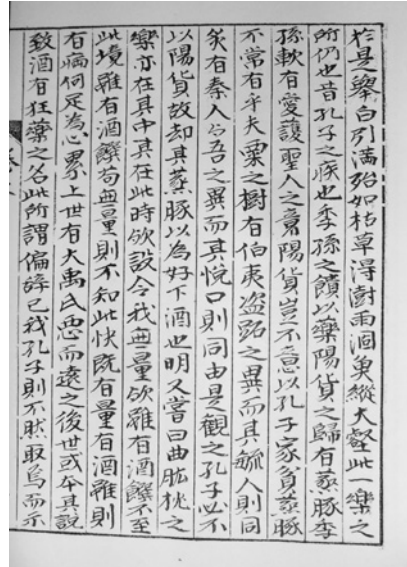 於是擧白引滿殆如枯草得澍雨涸魚縱大壑此一樂之
所仍也昔孔子之疾也季孫之饋以藥陽貨之歸有蒸豚季
孫軟有愛護聖人之意陽貨豈不意以孔子家貧蒸豚
不常有乎夫粟之樹有伯夷盗跖之異而其毓人則同
炙有秦人与吾之異而其悅口則同由是觀之孔子必不
以陽貨故却其蒸豚以為好下酒也明又嘗曰曲肱枕之
樂亦在其中其在此時欤設令我無量欤雖有酒饌不至
此境雖有酒饌苟無量則不知此快旣有量有酒雖則
有病何足為心累上世有大禹氏惡而遠之後世或本其說
致酒有狂藥之名此所謂偏辭已我孔子則不然取焉而示